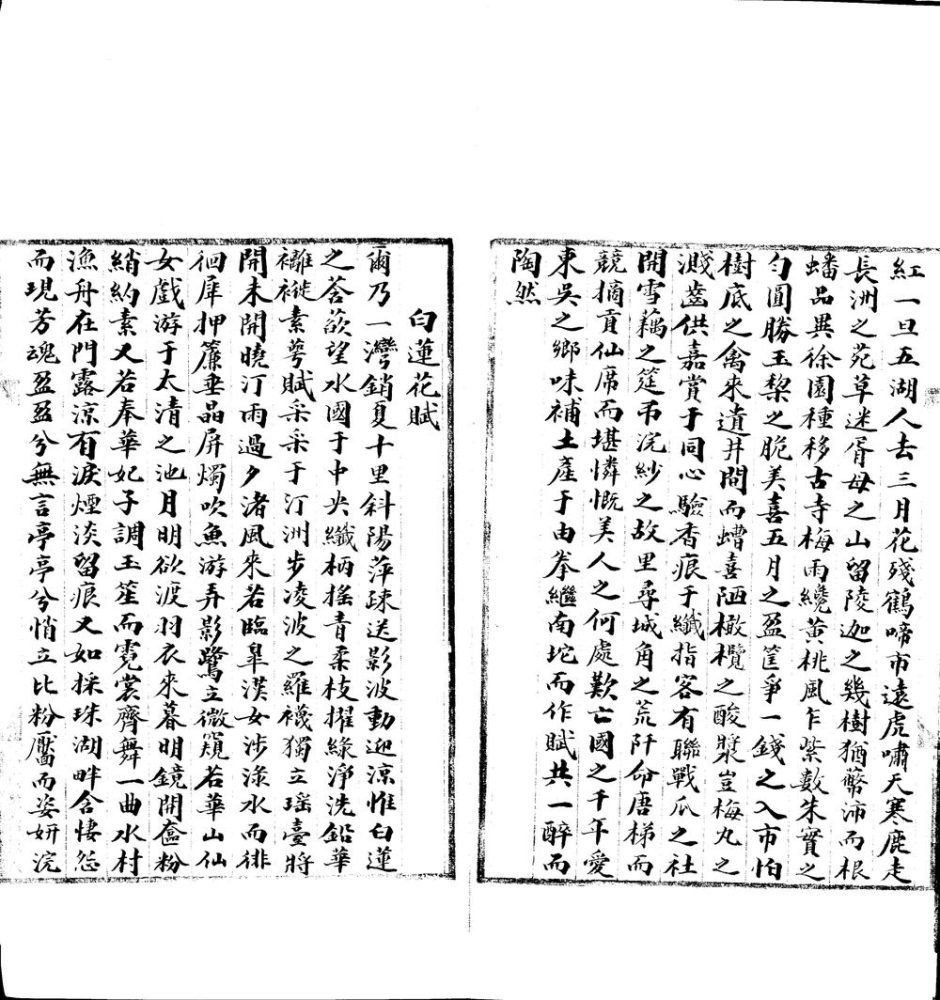 紅一旦五湖人去三月花殘鶴啼市遠虎嘯天寒鹿走
長洲之苑草迷胥母之山留陵迦之幾樹猶幣沛而根
蟠品異徐園種移古寺梅雨纔黃桃風乍紫數朱實之
勻圓勝玉棃之脆美喜五月之盈筐爭一錢之入市怕
樹底之禽來遺井間而螬喜陋橄欖之酸漿豈梅丸之
濺齒供嘉賞于同心驗香痕于纖指客有聯戰瓜之社
開雪藕之筵弔浣紗之故里尋城角之荒阡命唐梯而
競摘貢仙席而堪憐慨美人之何處歎亡國之千年愛
東吳之鄉味補土產于由拳繼南坨而作賦共一醉而
陶然
白蓮花賦
爾乃一灣銷夏十里斜陽萍疎送影波動迎涼惟白蓮
之菩蕟望水國于中央纖柄搖青柔枝擢綠淨洗鉛華
襳褷素萼賦采采于汀洲步凌波之羅襪獨立瑶臺將
開未開曉汀雨過夕渚風來若臨皋漢女涉淥水而徘
徊犀押簾垂晶屏燭吹魚游弄影鷺立微窺若華山仙
女戲游于太清之池月明欲渡羽衣來暮明鏡開奩粉
綃約素又若奉華妃子調玉笙而霓裳齊舞一曲水村
漁舟在門露涼有淚煙淡留痕又如採珠湖畔含悽怨
而現芳魂盈盈兮無言亭亭兮悄立比粉靨而姿妍浣